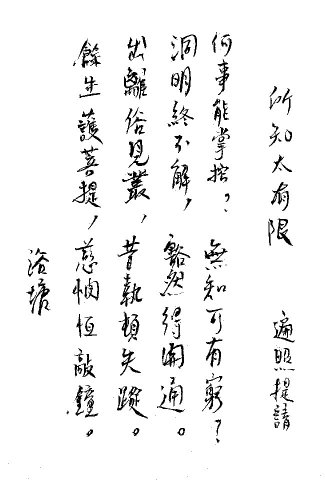 所知太有限 遍照提請
何事能掌控,？無知可有窮？
洞明終不解，豁然得開通。
出離俗見叢，昔執頓失蹤。
餘生護菩提，慈憫恒敲鐘。
洛塘